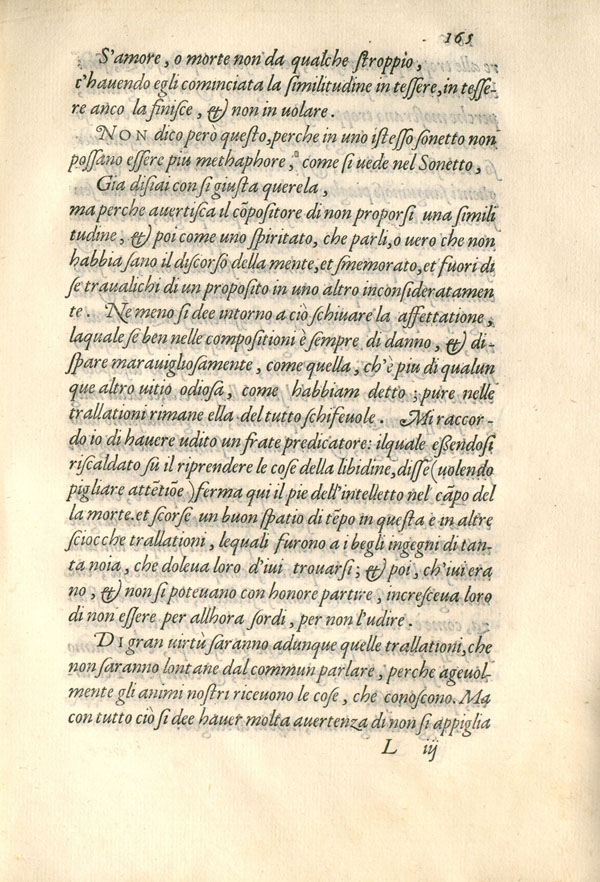 165
S'amore, o morte non da qualche stroppio,
c'hauendo egli cominciata la similitudine in tessere, in tesse-
re anco la finisce, & non in uolare.
NON dico però questo, perche in uno istesso sonetto non
possano essere piu methaphore, come si uede nel Sonetto,
Gia disiai con si giusta querela,
ma perche auertisca il cōpositore di non proporsi una simili
tudine, & poi come uno spiritato, che parli, o uero che non
habbia sano il discorso della mente, et smemorato, et fuori di
se traualichi di un proposito in uno altro inconsideratamen
te. Ne meno si dee intorno a ciò schiuare la affettatione,
laquale se ben nelle compositioni è sempre di danno, & di-
spare marauigliosamente, come quella, ch'è piu di qualun
que altro uitio odiosa, come habbiam detto; pure nelle
trallationi rimane ella del tutto schifeuole. Mi raccor-
do io di hauere udito un frate predicatore: ilquale eßendosi
riscaldato sù il riprendere le cose della libidine, disse (uolendo
pigliare attētiōe) ferma qui il pie dell'intelletto nel cāpo del
la morte. et scorse un buon spatio di tēpo in questa e in altre
sciocche trallationi, lequali furono a i begli ingegni di tan-
ta noia, che doleua loro d'iui trouarsi; & poi, ch'iui era
no, & non si poteuano con honore partire, incresceua loro
di non essere per allhora sordi, per non l'udire.
DI gran uirtù saranno adunque quelle trallationi, che
non saranno lontane dal commun parlare, perche ageuol-
mente gli animi nostri riceuono le cose, che conoscono. Ma
con tutto ciò si dee hauer molta auertenza di non si appiglia
L iij